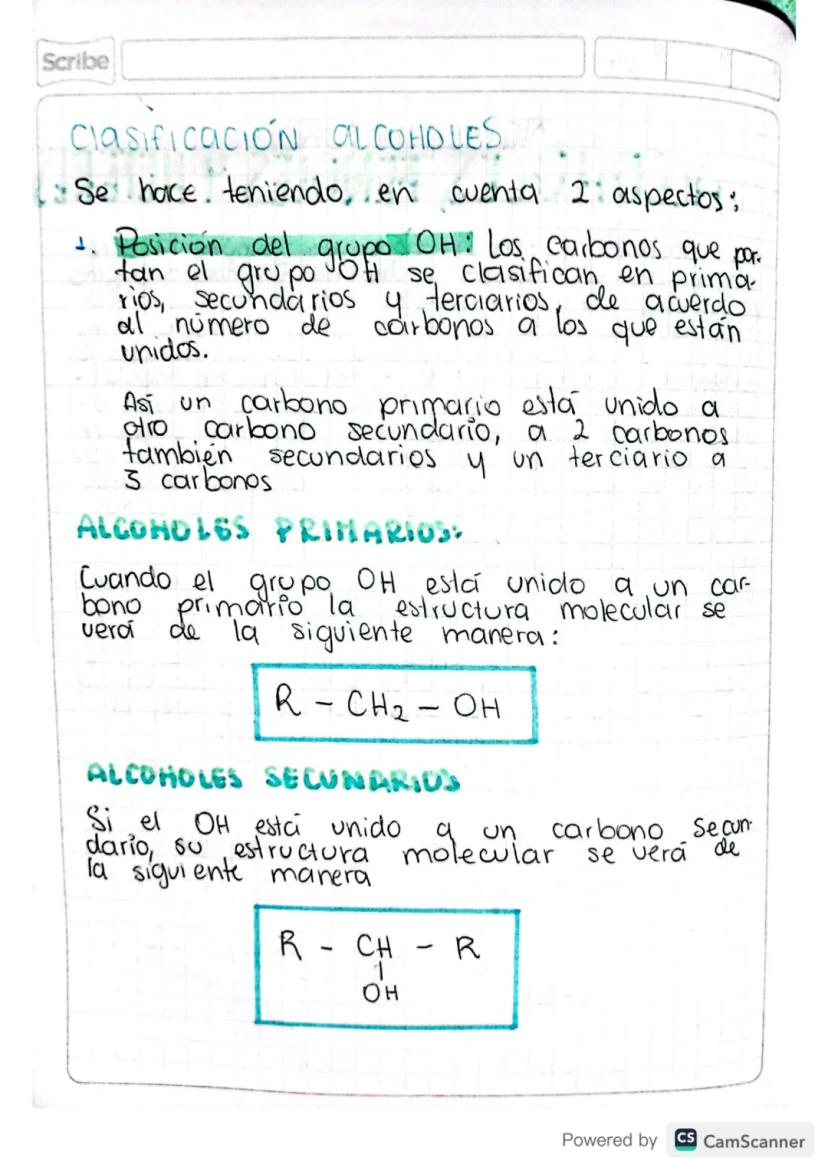 Scribe
Clasificación alcoholes
Se hace teniendo en cuenta 2 aspectos:
1. Posición del grupo OH: Los carbonos que por-
tan el grupo OH se clasifican en prima-
rios, secundarios y terciarios, de acuerdo
al número de carbonos a los que están
unidos.
Así un carbono primario está unido a
otro carbono secundario, a 2 carbonos
también secundarios y un terciario a
3 carbonos
ALCOHOLES PRIMARIOS:
Cuando el grupo OH está unido a un car-
bono primario la estructura molecular se
verá de la siguiente manera:
R - CH2 - OH
ALCOHOLES SECUNARIOS
Si el OH está unido a un carbono Secun-
dario, su estructura molecular se verá de
la siguiente manera
R - CH - R
|
OH
Powered by CS CamScanner